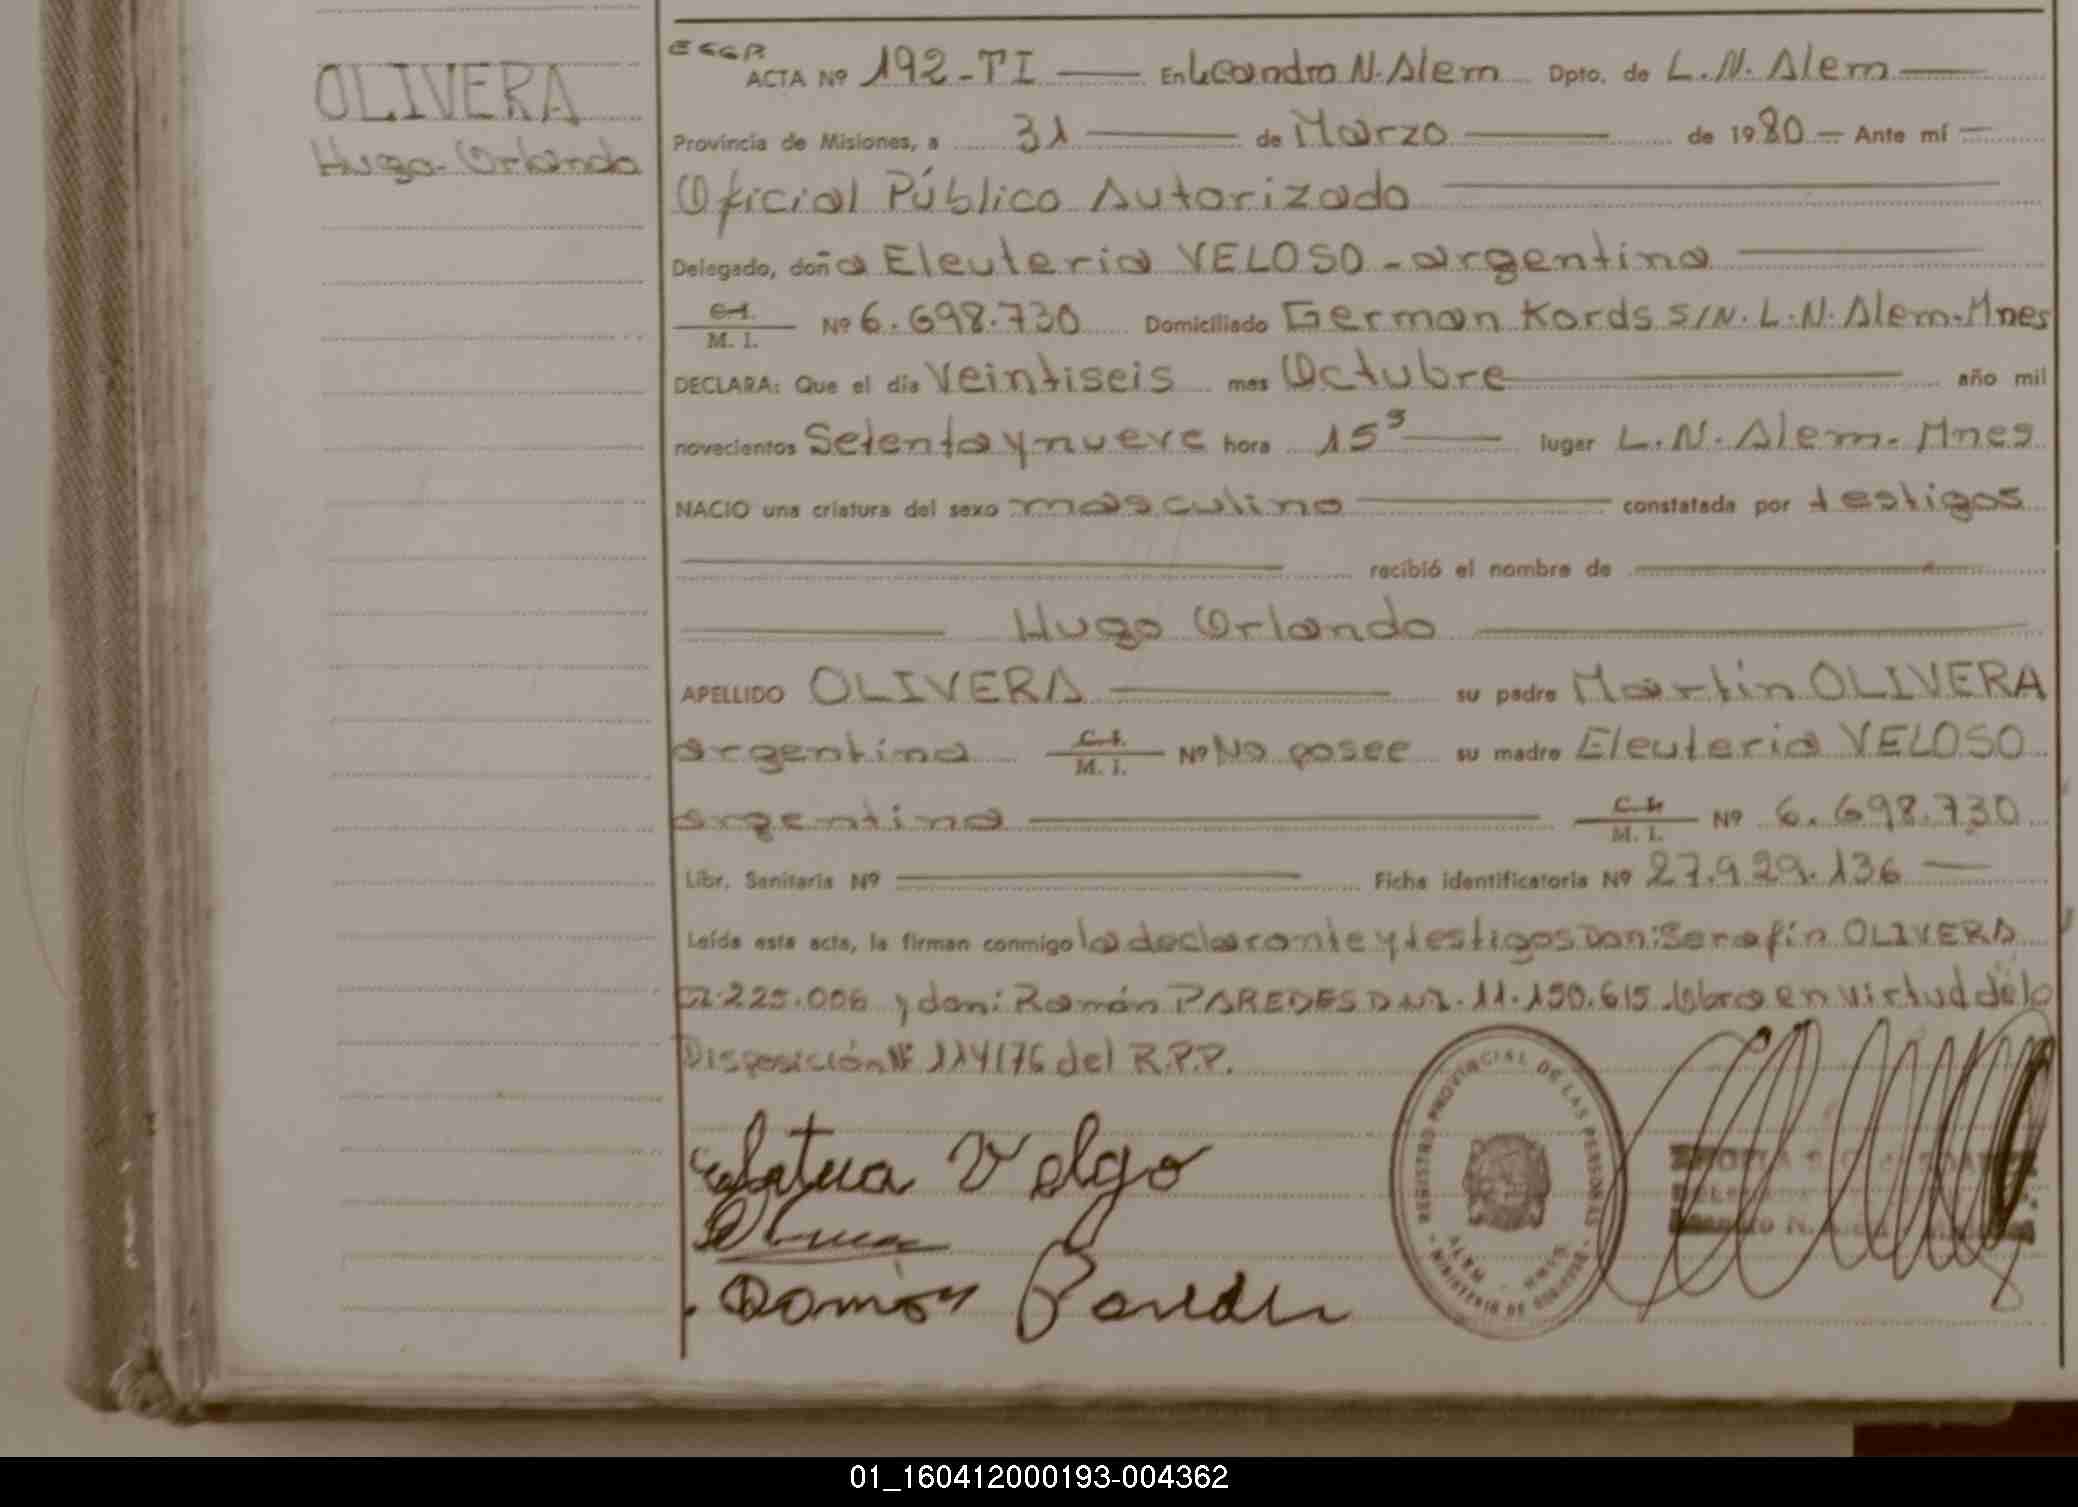 OLIVERA
Hugo Orlando
ACTA Nº 192-TI En Leandro N. Alem Dpto. de L.N. Alem
Provincia de Misiones, a 31 de Marzo de 1980 Ante mí
Oficial Público Autorizado
Delegado, doña Eleuteria VELOSO - argentina
C.I.
M. I. Nº 6.698.730 Domiciliado German Kords S/N. L.N. Alem-Mnes
DECLARA: Que el día Veintiseis mes Octubre año mil
novecientos Setenta y nueve hora 15 lugar L.N. Alem - Mnes
NACIO una criatura del sexo masculino constatada por testigos
recibió el nombre de
Hugo Orlando
APELLIDO OLIVERA su padre Martin OLIVERA
argentino C.I. M. I. Nº No posee su madre Eleuteria VELOSO
argentina C.I. M. I. Nº 6.698.730
Libr. Sanitaria Nº Ficha identificatoria Nº 27.929.136
Leída esta acta, la firman conmigo la declarante y testigos Don: Serafín OLIVERA
225.006 y don: Ramón PAREDES D.N.I. 11.150.615. labra en virtud de lo
Disposición Nº 114/76 del R.P.P.
Ramón Paredes
REGISTRO PROVINCIAL DE LAS PERSONAS
ALEM - MNES
MINISTERIO DE GOBIERNO
01_160412000193-004362